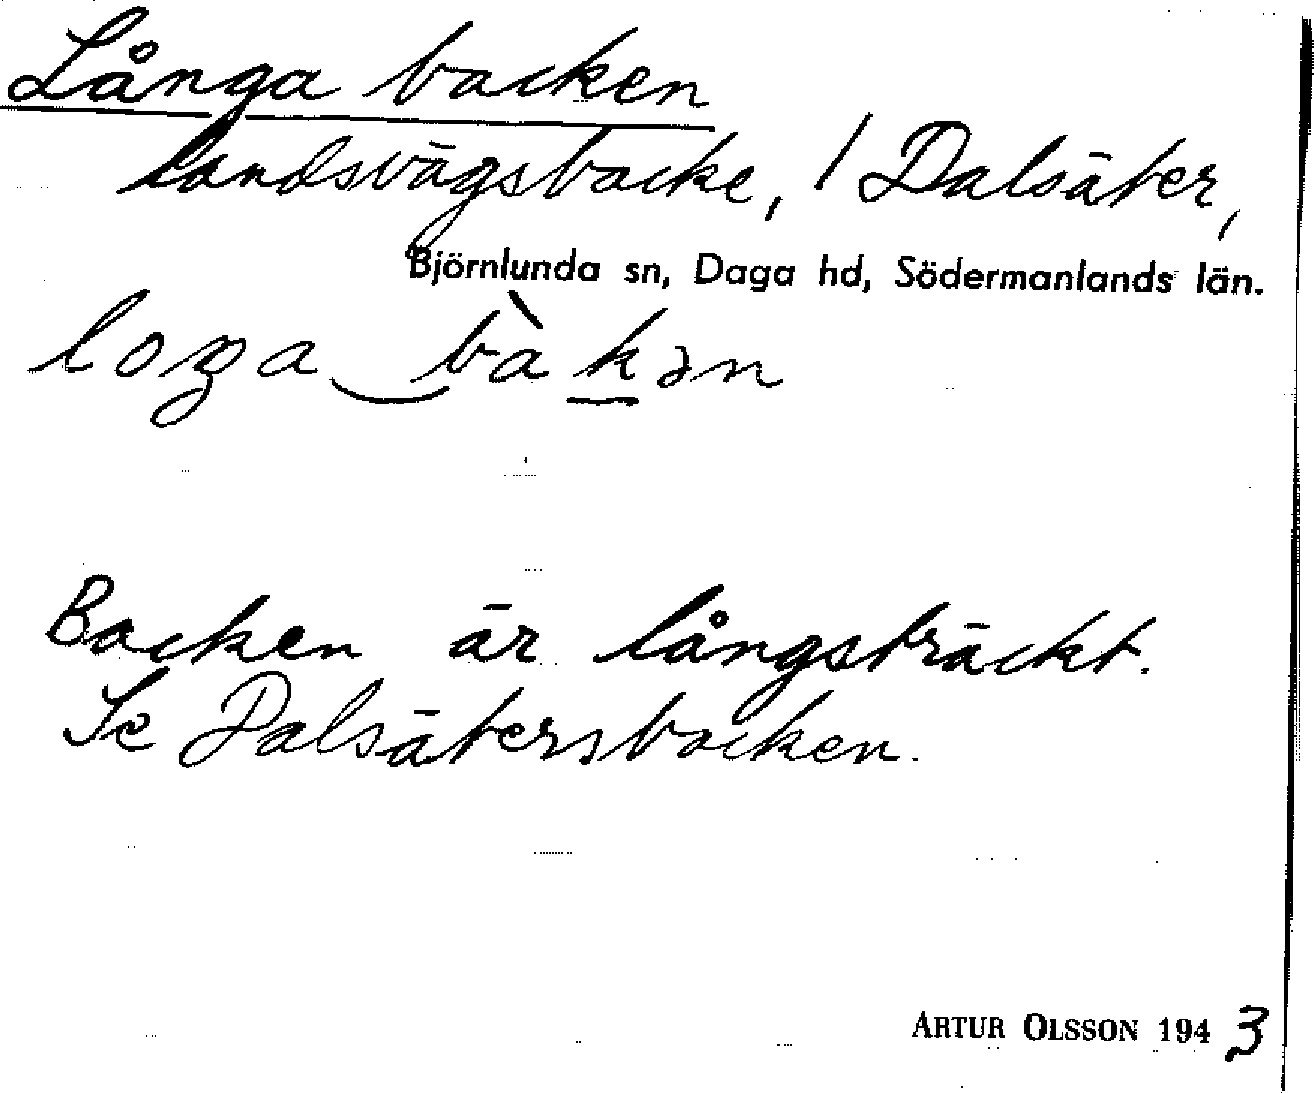 Långa backen
landsvägsbacke, / Dalsäter,
Björnlunda sn, Daga hd, Södermanlands län.
loŋa bàkən
Backen är långsträckt.
Se Dalsätersbacken.
ARTUR OLSSON 1943